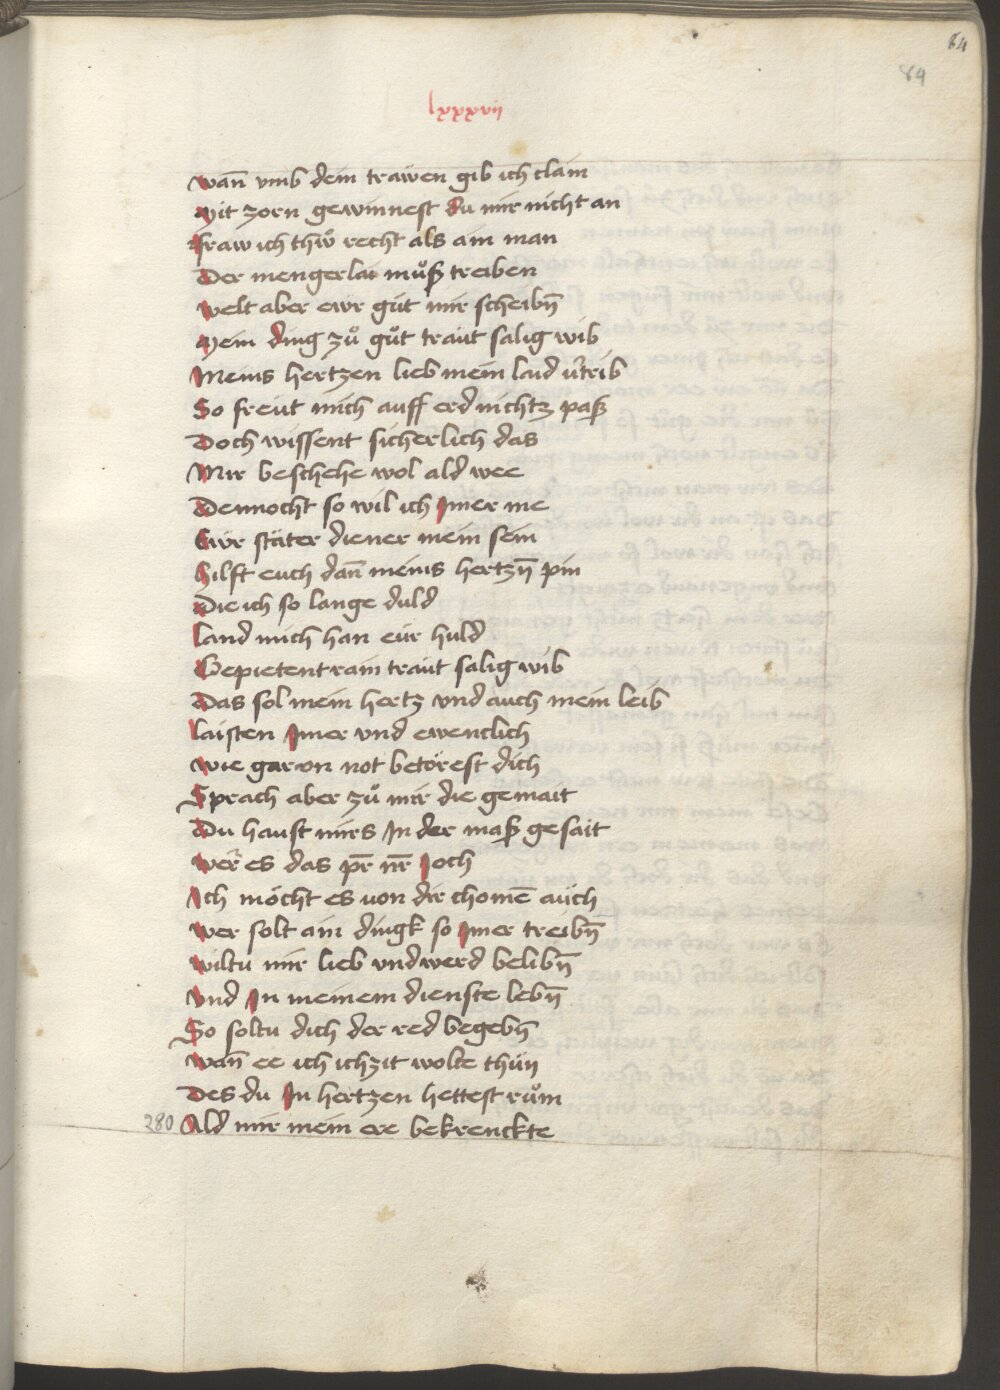 84
84
lxxxvii
Wañ vmb dein träwen gib ich clain
Mit zorn gewinnest du mir nicht an
Fraw ich thů recht als ain man
Der mengerlai můß treiben
Welt aber ewr güt mir scheibñ
Mein ding zů gůt traüt salig wib
Meins hertzen lieb mein laid v̓trib
So freüt mich auff erd nichtz paß
Doch wissent sicherlich das
Mir beschehe wol ald wee
Dennocht so wil ich Jmer me
Ewr stäter diener mein sein
Hilft euch dañ meins hertzñ pin
Die ich so lange duld
Land mich han eür huld
Gepietent rain traüt salig wib
Das sol mein hertz vnd auch mein leib
Laisten Jmer vnd ewenclich
Wie gar vn not betörest dich
Sprach aber zů mir die gemait
Du haust mirs Jn der maß gesait
Wer es das pr̄ nr̄ Joch
Ich möcht es von dir chomē aüch
Wer solt ain dingk so Jmer treibñ
Wiltu mir lieb vnd werd belibñ
Vnd Jn meinem dienste lebñ
So soltu dich der red begebñ
Wañ ee ich ichzit wolte thün
Des du Jn hertzen hettest rům
280 Ald mir mein ere bekrenckte